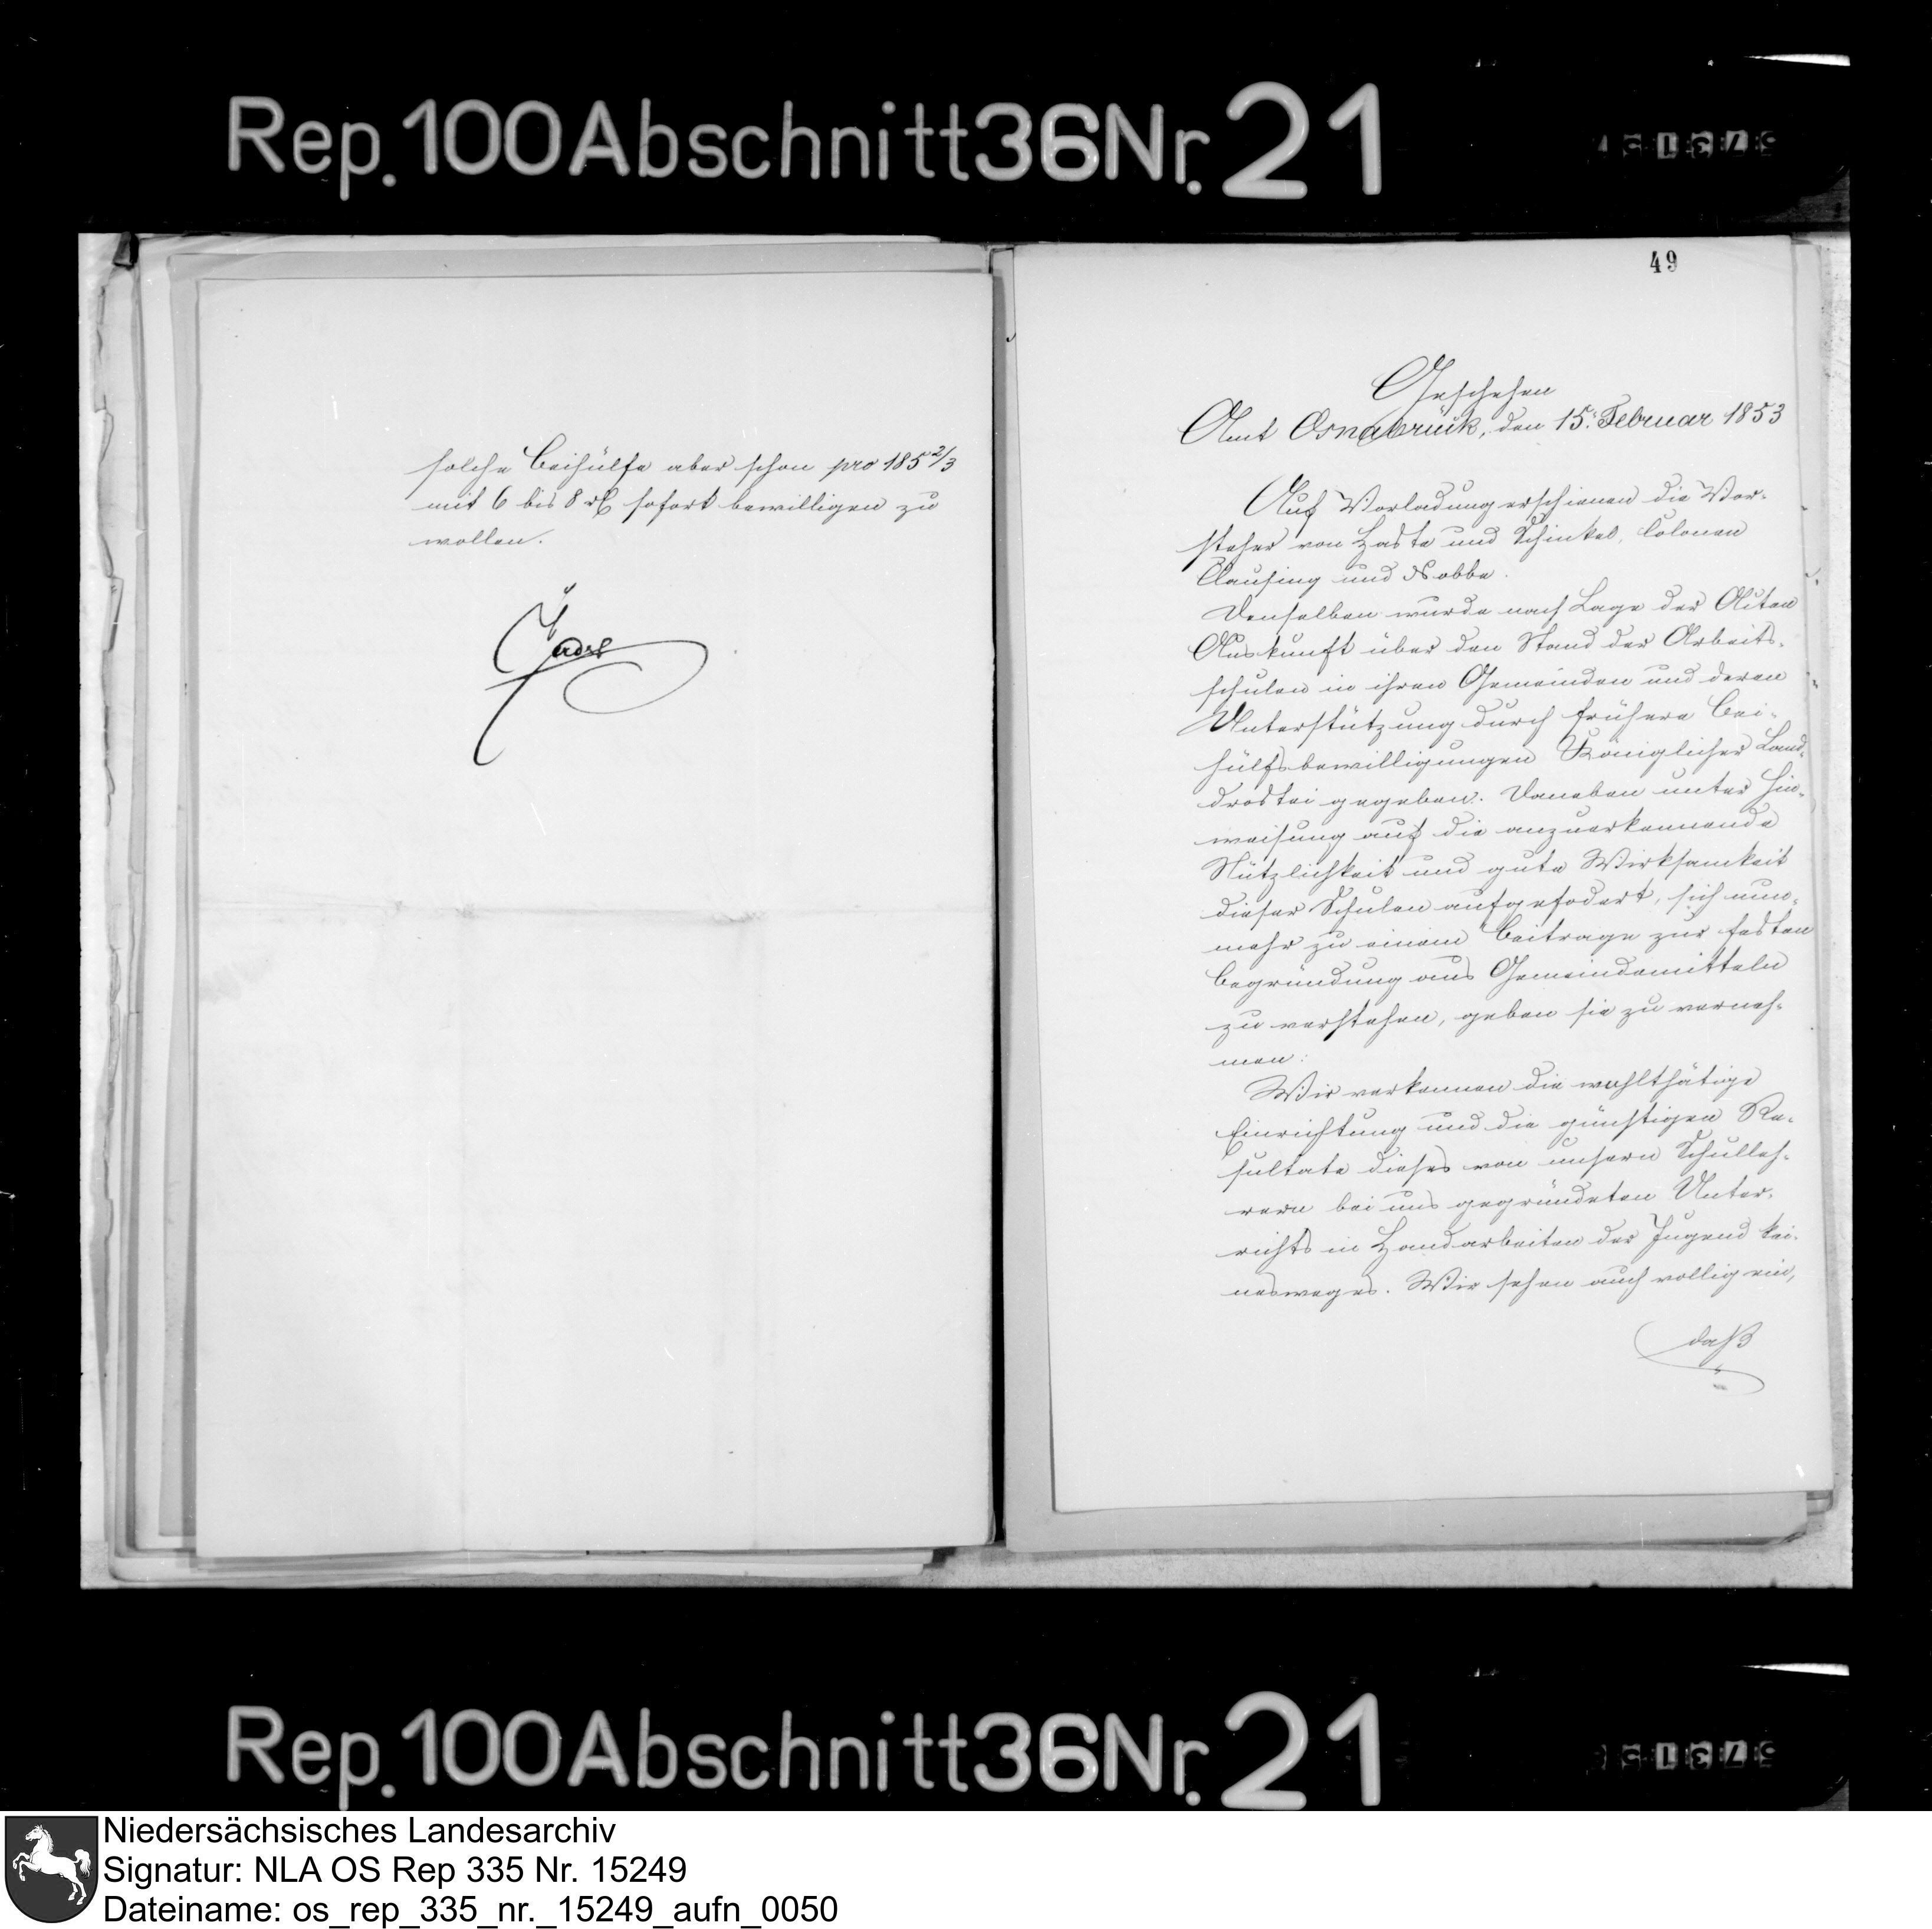 Rep.100Abschnitt36Nr.21
solche Beihülfe aber schon pro 185 2/3
mit 6 bis 8 rℓ sofort bewilligen zu
wollen.
49
Geschehen
Amt Osnabrück, den 15. Februar 1853
Auf Vorladung erschienen die Vor-
steher von Haste und Schinkel, Colonen
Clausing und Nobbe.
Denselben wurde nach Lage der Akten
Auskunft über den Stand der Arbeits-
schulen in ihren Gemeinden und deren
Unterstützung durch frühere Bei-
hülfsbewilligungen Königlicher Land-
drostei gegeben. Daneben unter Hin-
weisung auf die anzuerkennende
Nützlichkeit und gute Wirksamkeit
dieser Schulen aufgefodert, sich nun-
mehr zu einem Beitrage zur festen
Begründung aus Gemeindemitteln
zu verstehen, geben sie zu verneh-
men:
Wir verkennen die wohlthätige
Einrichtung und die günstigen Re-
sultate dieses von unsern Schulleh-
rern bei uns gegründeten Unter-
richts in Handarbeiten der Jugend kei-
nesweges. Wir sehen auch vollig ein,
daß
Rep.100Abschnitt36Nr.21
Niedersächsisches Landesarchiv
Signatur: NLA OS Rep 335 Nr. 15249
Dateiname: os_rep_335_nr._15249_aufn_0050